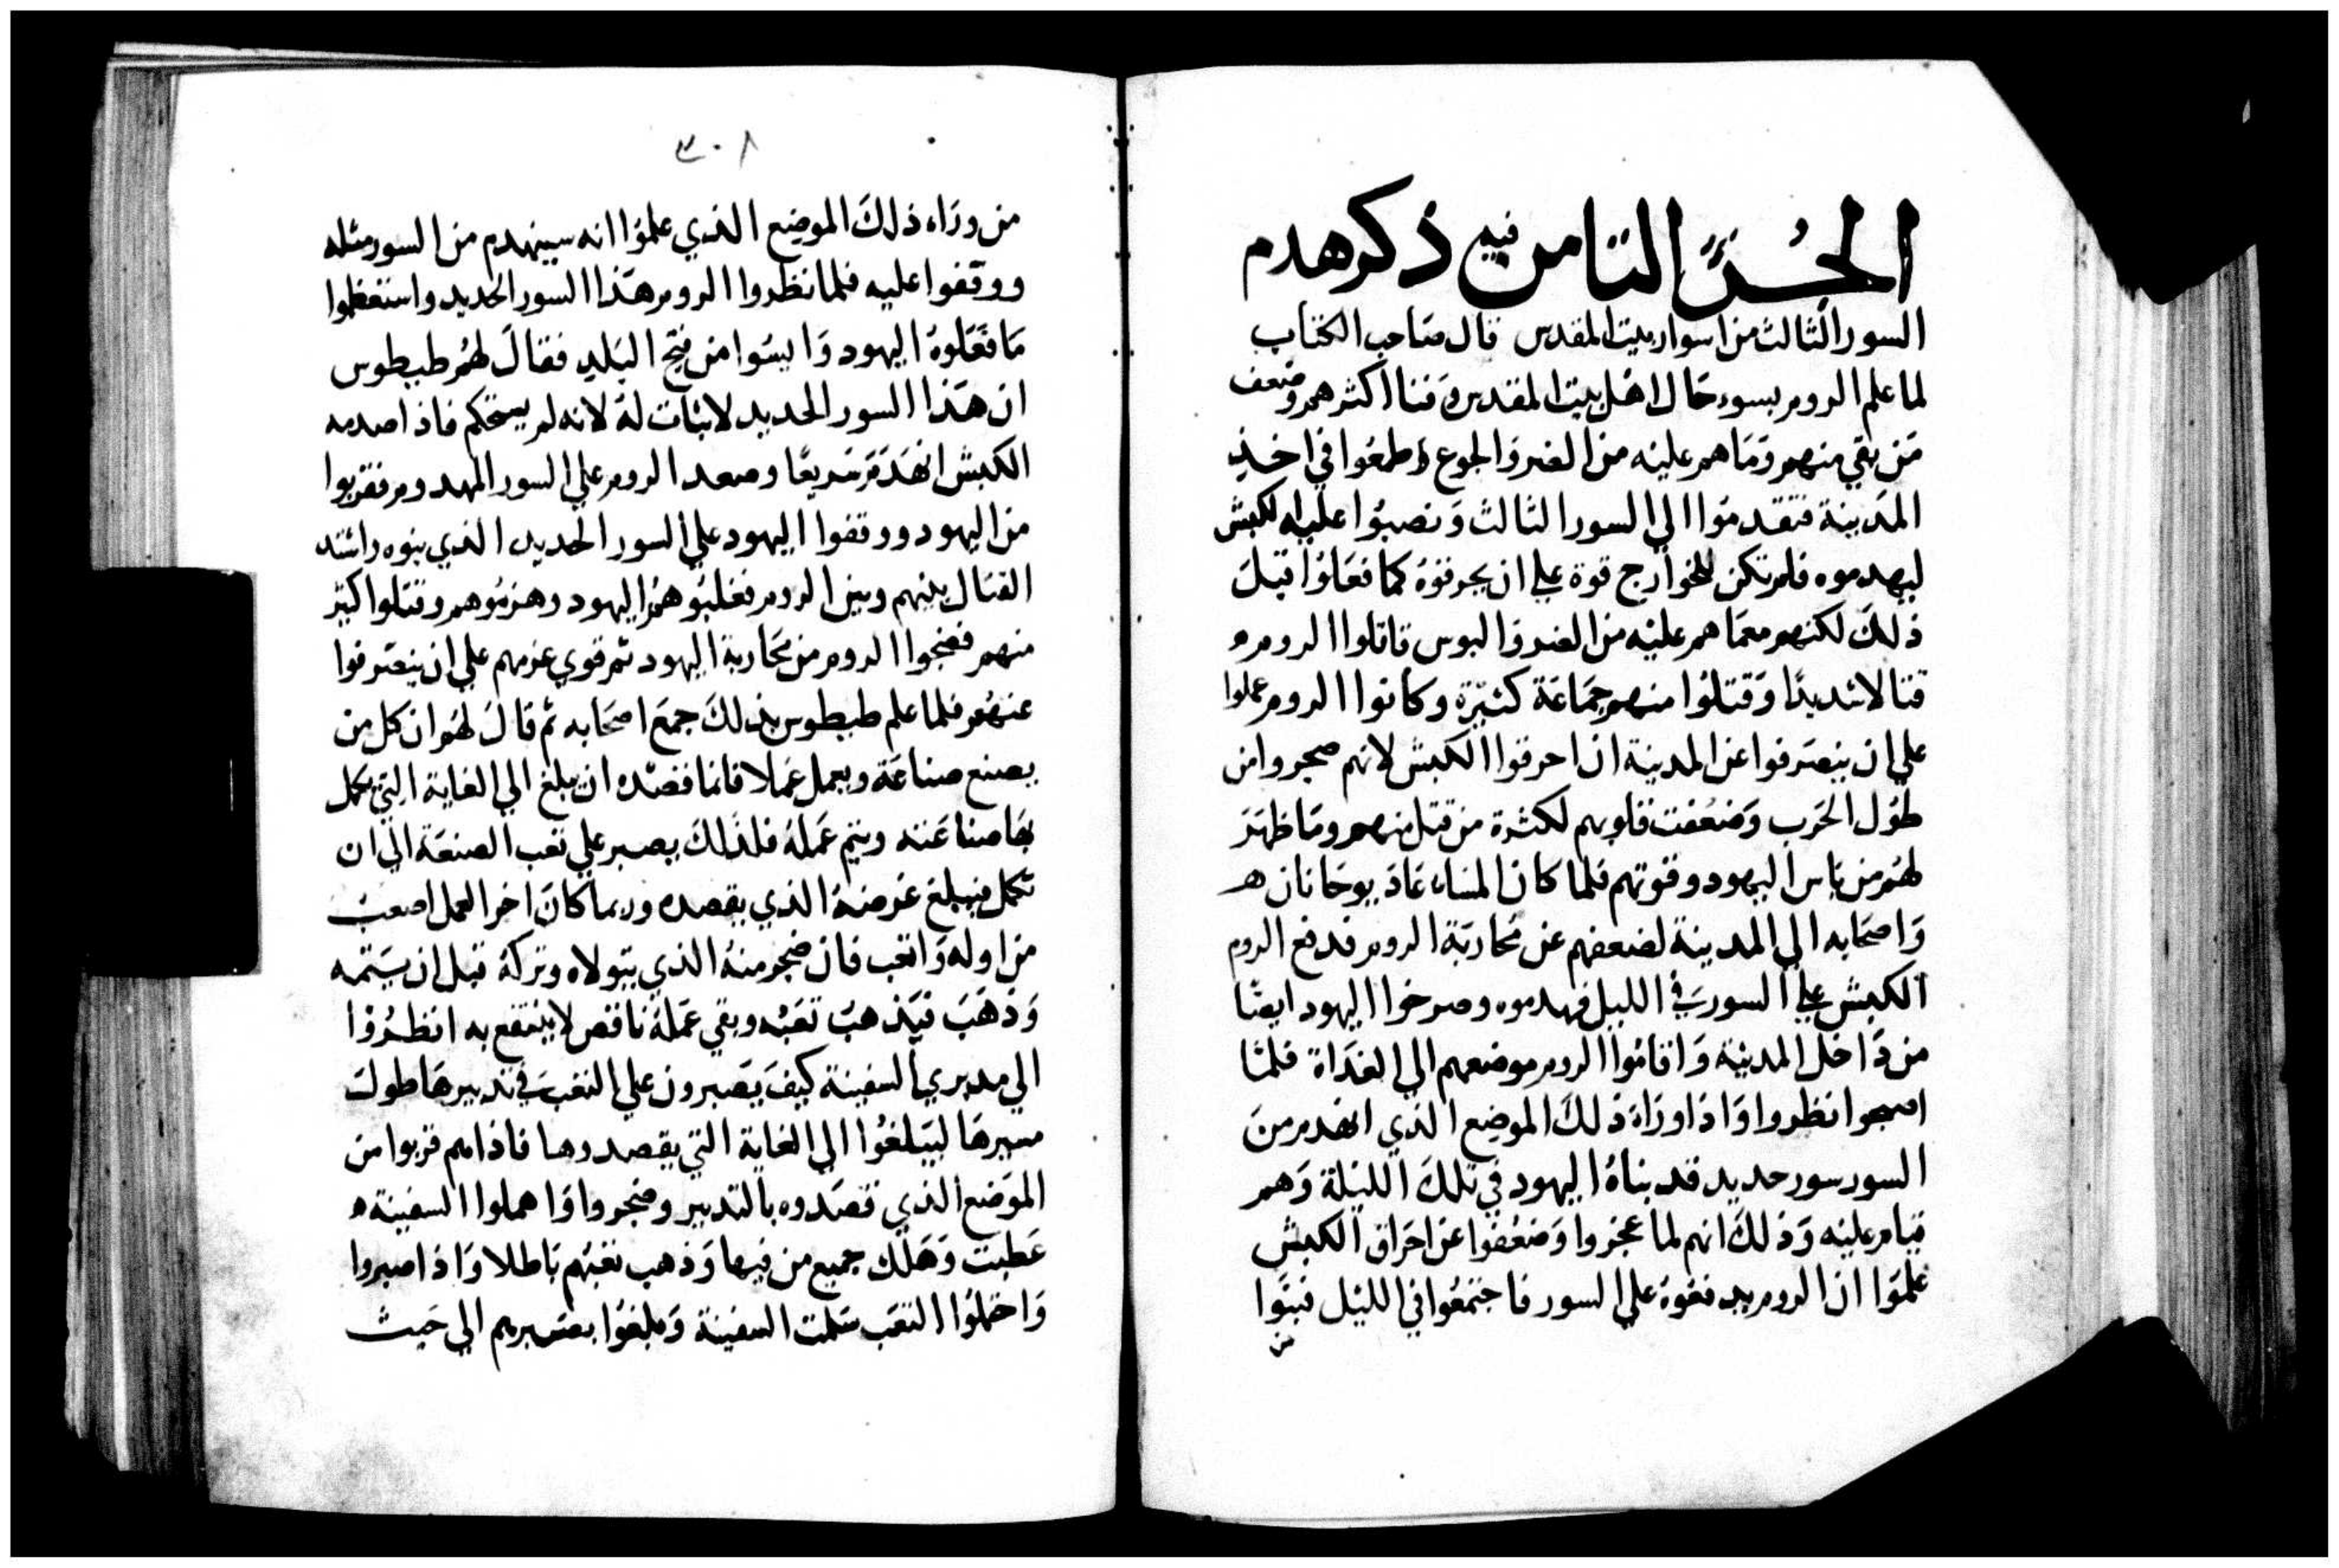 الجزء الثامن فيه ذكر هدم
السور الثالث من اسوار بيت المقدس قال صاحب الكتاب
لما علم الروم بسوء حال اهل بيت المقدس وفنا اكثرهم وضعف
من بقي منهم وما هم عليه من الضر والجوع وطمعوا في اخذ
المدينة فتقدموا الي السور الثالث ونصبوا عليه الكبش
ليهدموه فلم تكن للخوارج قوة علي ان يحرقوه كما فعلوا قبل
ذلك لكنهم معما هم عليه من الضر والبوس قاتلوا الروم
قتالا شديدا وقتلوا منهم جماعة كثيرة وكانوا الروم عملوا
علي ان ينصرفوا عن المدينة ان احرقوا الكبش لانهم ضجروا من
طول الحرب وضعفت قلوبهم لكثرة من قتل منهم وما ظهر
لهم من باس اليهود وقوتهم فلما كان المساء عاد يوحانان
واصحابه الي المدينة لضعفهم عن محاربة الروم فدفع الروم
الكبش علي السور في الليل فهدموه وصرخوا اليهود ايضا
من داخل المدينة واقاموا الروم موضعهم الي الغداة فلما
اصبحوا نظروا واذا وراء ذلك الموضع الذي انهدم من
السور سور جديد قد بناه اليهود في تلك الليلة وهم
قيام عليه وذلك انهم لما عجزوا وضعفوا عن احراق الكبش
علموا ان الروم يدفعوه علي السور فاجتمعوا في الليل فبنوا
من
٣٠٨
من وراء ذلك الموضع الذي علموا انه سينهدم من السور مثله
ووقفوا عليه فلما نظروا الروم هذا السور الجديد واستعظموا
ما فعلوه اليهود وايسوا من فتح البلد فقال لهم طيطوس
ان هذا السور الجديد لا ثبات له لانه لم يستحكم فاذا صدمه
الكبش انهدم سريعا وصعد الروم علي السور المهدوم فقربوا
من اليهود ووقفوا اليهود علي السور الجديد الذي بنوه واشتد
القتال بينهم وبين الروم فغلبوهم اليهود وهزموهم وقتلوا كثير
منهم فضجوا الروم من محاربة اليهود ثم قوي عزمهم علي ان ينصرفوا
عنهم فلما علم طيطوس بذلك جمع اصحابه ثم قال لهم ان كل من
يصنع صناعة ويعمل عملا فانما قصده ان يبلغ الي الغاية التي تكمل
بها صناعته ويتم عمله فلذلك يصبر علي تعب الصنعة الي ان
تكمل فيبلغ غرضه الذي يقصده وربما كان اخر العمل اصعب
من اوله واتعب فان ضجر منه الذي يتولاه وتركه قبل ان يستتمه
وذهب فيذهب تعبه وبقي عمله ناقص لا ينتفع به انظروا
الي مدبري السفينة كيف يصبرون علي التعب في تدبيرها طول
مسيرها ليبلغوا الي الغاية التي يقصدوها فاذا هم قربوا من
الموضع الذي قصدوه بالتدبير وضجروا واهملوا السفينة
عطبت وهلك جميع من فيها وذهب تعبهم باطلا واذا صبروا
واحتملوا التعب سلمت السفينة وبلغوا بصبرهم الي حيث